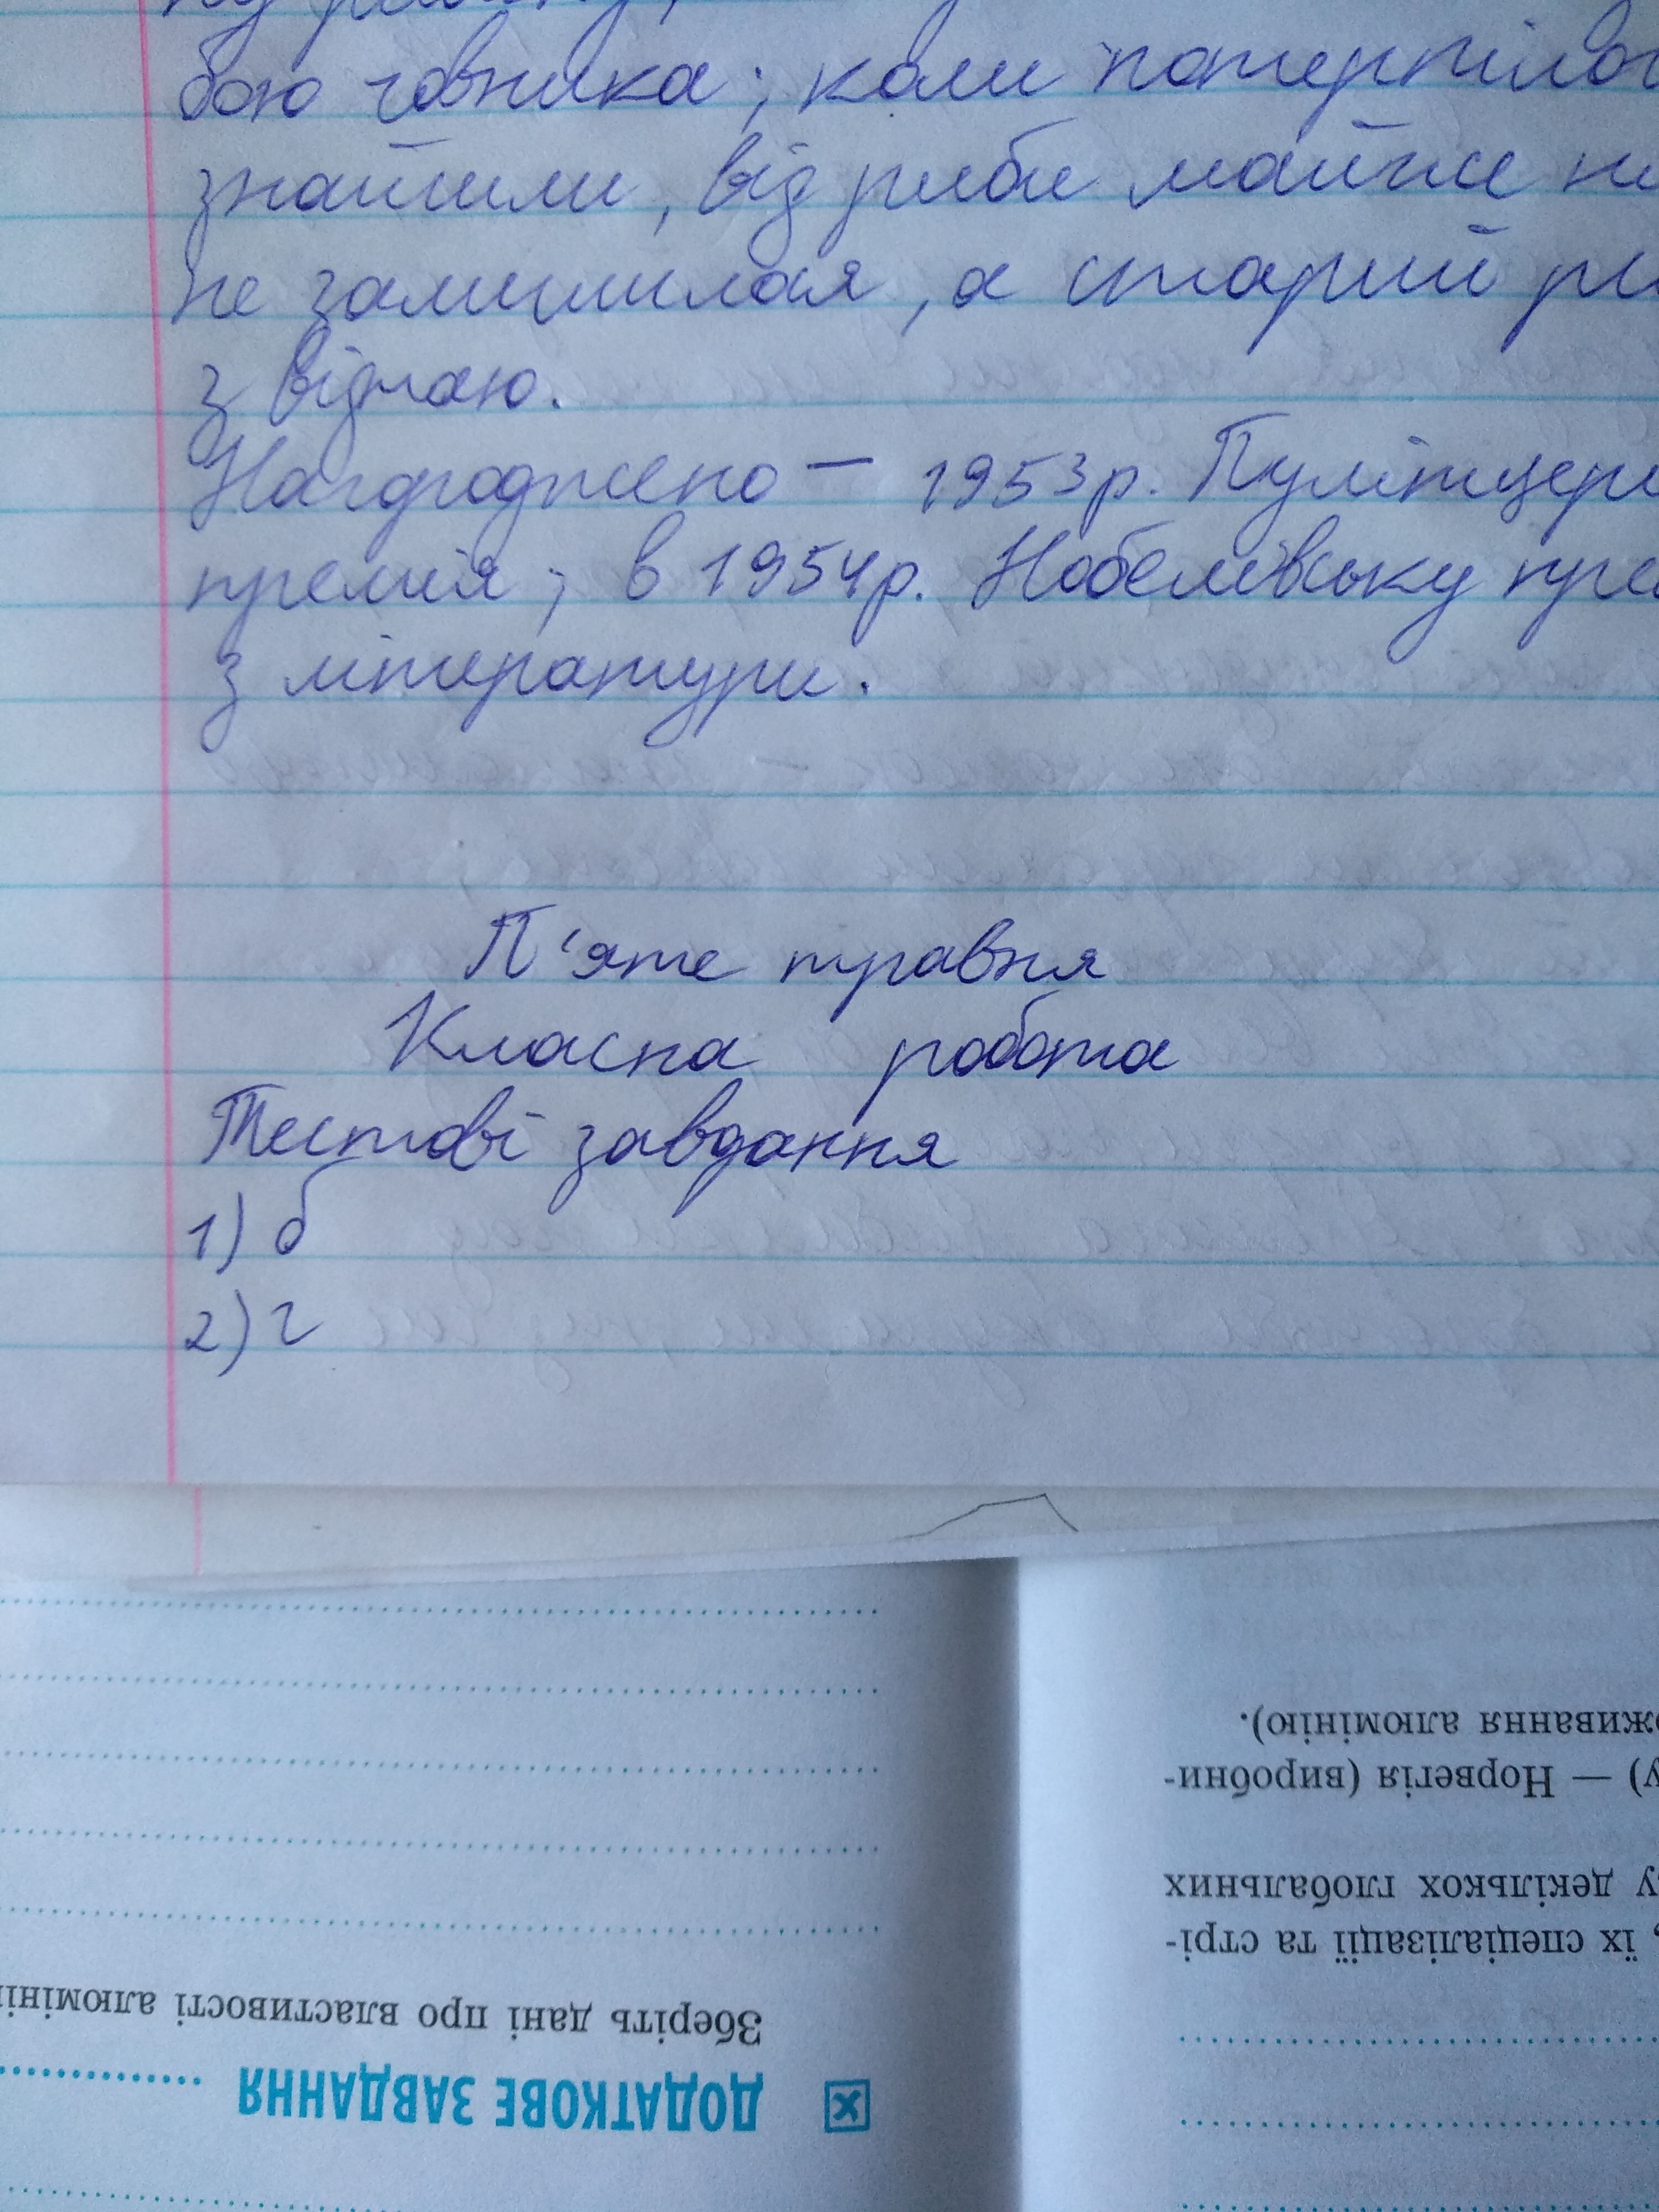 бою човника; коли потерпілог
знайшли, від риби майже ні
не залишилося, а старий ри
з відчаю.
Нагороджено – 1953р. Пулітцері
премія; в 1954р. Нобелівську пре
з літератури.
П'яте травня
Класна робота
Тестові завдання
1) б
2) г
ДОДАТКОВЕ ЗАВДАННЯ
Зберіть дані про властивості алюміні
, їх спеціалізації та стрі-
у декількох глобальних
у) — Норвегія (виробни-
живання алюмінію).